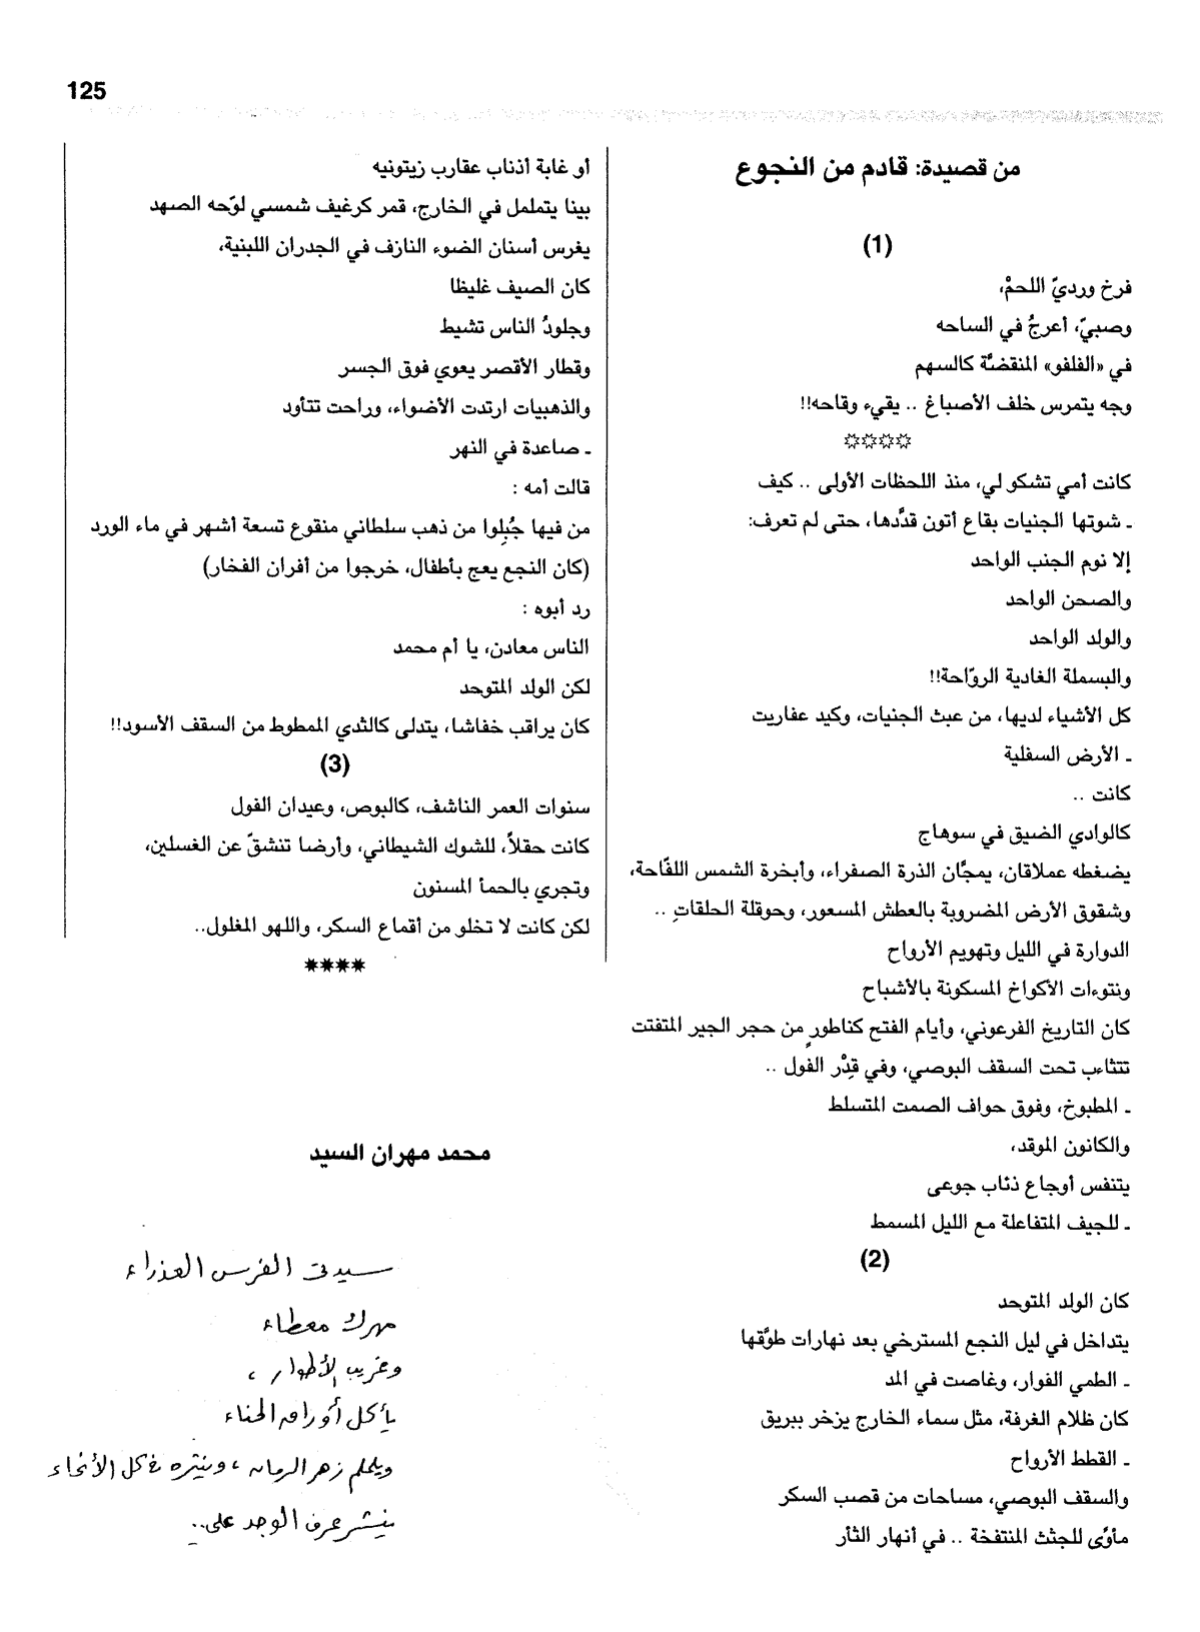 125
من قصيدة: قادم من النجوع
(1)
فرخ ورديّ اللحمْ،
وصبيّ، أعرجُ في الساحه
في «الفلفو» المنقضّة كالسهم
وجه يتمرس خلف الأصباغ .. يقيء وقاحه!!
☼☼☼☼
كانت أمي تشكو لي، منذ اللحظات الأولى .. كيف
ـ شوتها الجنيات بقاع أتون قدَّدها، حتى لم تعرف:
إلا نوم الجنب الواحد
والصحن الواحد
والولد الواحد
والبسملة الغادية الروّاحة!!
كل الأشياء لديها، من عبث الجنيات، وكيد عفاريت
ـ الأرض السفلية
كانت ..
كالوادي الضيق في سوهاج
يضغطه عملاقان، يمجَّان الذرة الصفراء، وأبخرة الشمس اللفّاحة،
وشقوق الأرض المضروبة بالعطش المسعور، وحوقلة الحلقاتِ ..
الدوارة في الليل وتهويم الأرواح
ونتوءات الأكواخ المسكونة بالأشباح
كان التاريخ الفرعوني، وأيام الفتح كناطورٍ من حجر الجير المتفتت
تتثاءب تحت السقف البوصي، وفي قِدْر الفول ..
ـ المطبوخ، وفوق حواف الصمت المتسلط
والكانون الموقد،
يتنفس أوجاع ذئاب جوعى
ـ للجيف المتفاعلة مع الليل المسمط
(2)
كان الولد المتوحد
يتداخل في ليل النجع المسترخي بعد نهارات طوَّقها
ـ الطمي الفوار، وغاصت في المد
كان ظلام الغرفة، مثل سماء الخارج يزخر ببريق
ـ القطط الأرواح
والسقف البوصي، مساحات من قصب السكر
مأوًى للجثث المنتفخة .. في أنهار الثأر
أو غابة أذناب عقارب زيتونيه
بينا يتململ في الخارج، قمر كرغيف شمسي لوّحه الصهد
يغرس أسنان الضوء النازف في الجدران اللبنية،
كان الصيف غليظا
وجلودُ الناس تشيط
وقطار الأقصر يعوي فوق الجسر
والذهبيات ارتدت الأضواء، وراحت تتأود
ـ صاعدة في النهر
قالت أمه :
من فيها جُبِلوا من ذهب سلطاني منقوع تسعة أشهر في ماء الورد
(كان النجع يعج بأطفال، خرجوا من أفران الفخار)
رد أبوه :
الناس معادن، يا أم محمد
لكن الولد المتوحد
كان يراقب خفاشا، يتدلى كالثدي الممطوط من السقف الأسود!!
(3)
سنوات العمر الناشف، كالبوص، وعيدان الفول
كانت حقلاً، للشوك الشيطاني، وأرضا تنشقّ عن الغسلين،
وتجري بالحمأ المسنون
لكن كانت لا تخلو من أقماع السكر، واللهو المغلول..
****
محمد مهران السيد
سيدتى الفرس العذراء
مهرك معطاء
وغريب الأطوار ،
يأكل أوراق الحناء
ويلملم زهر الرمان ، وينثره فى كل الأنحاء
ينشر عرف الوجد على..